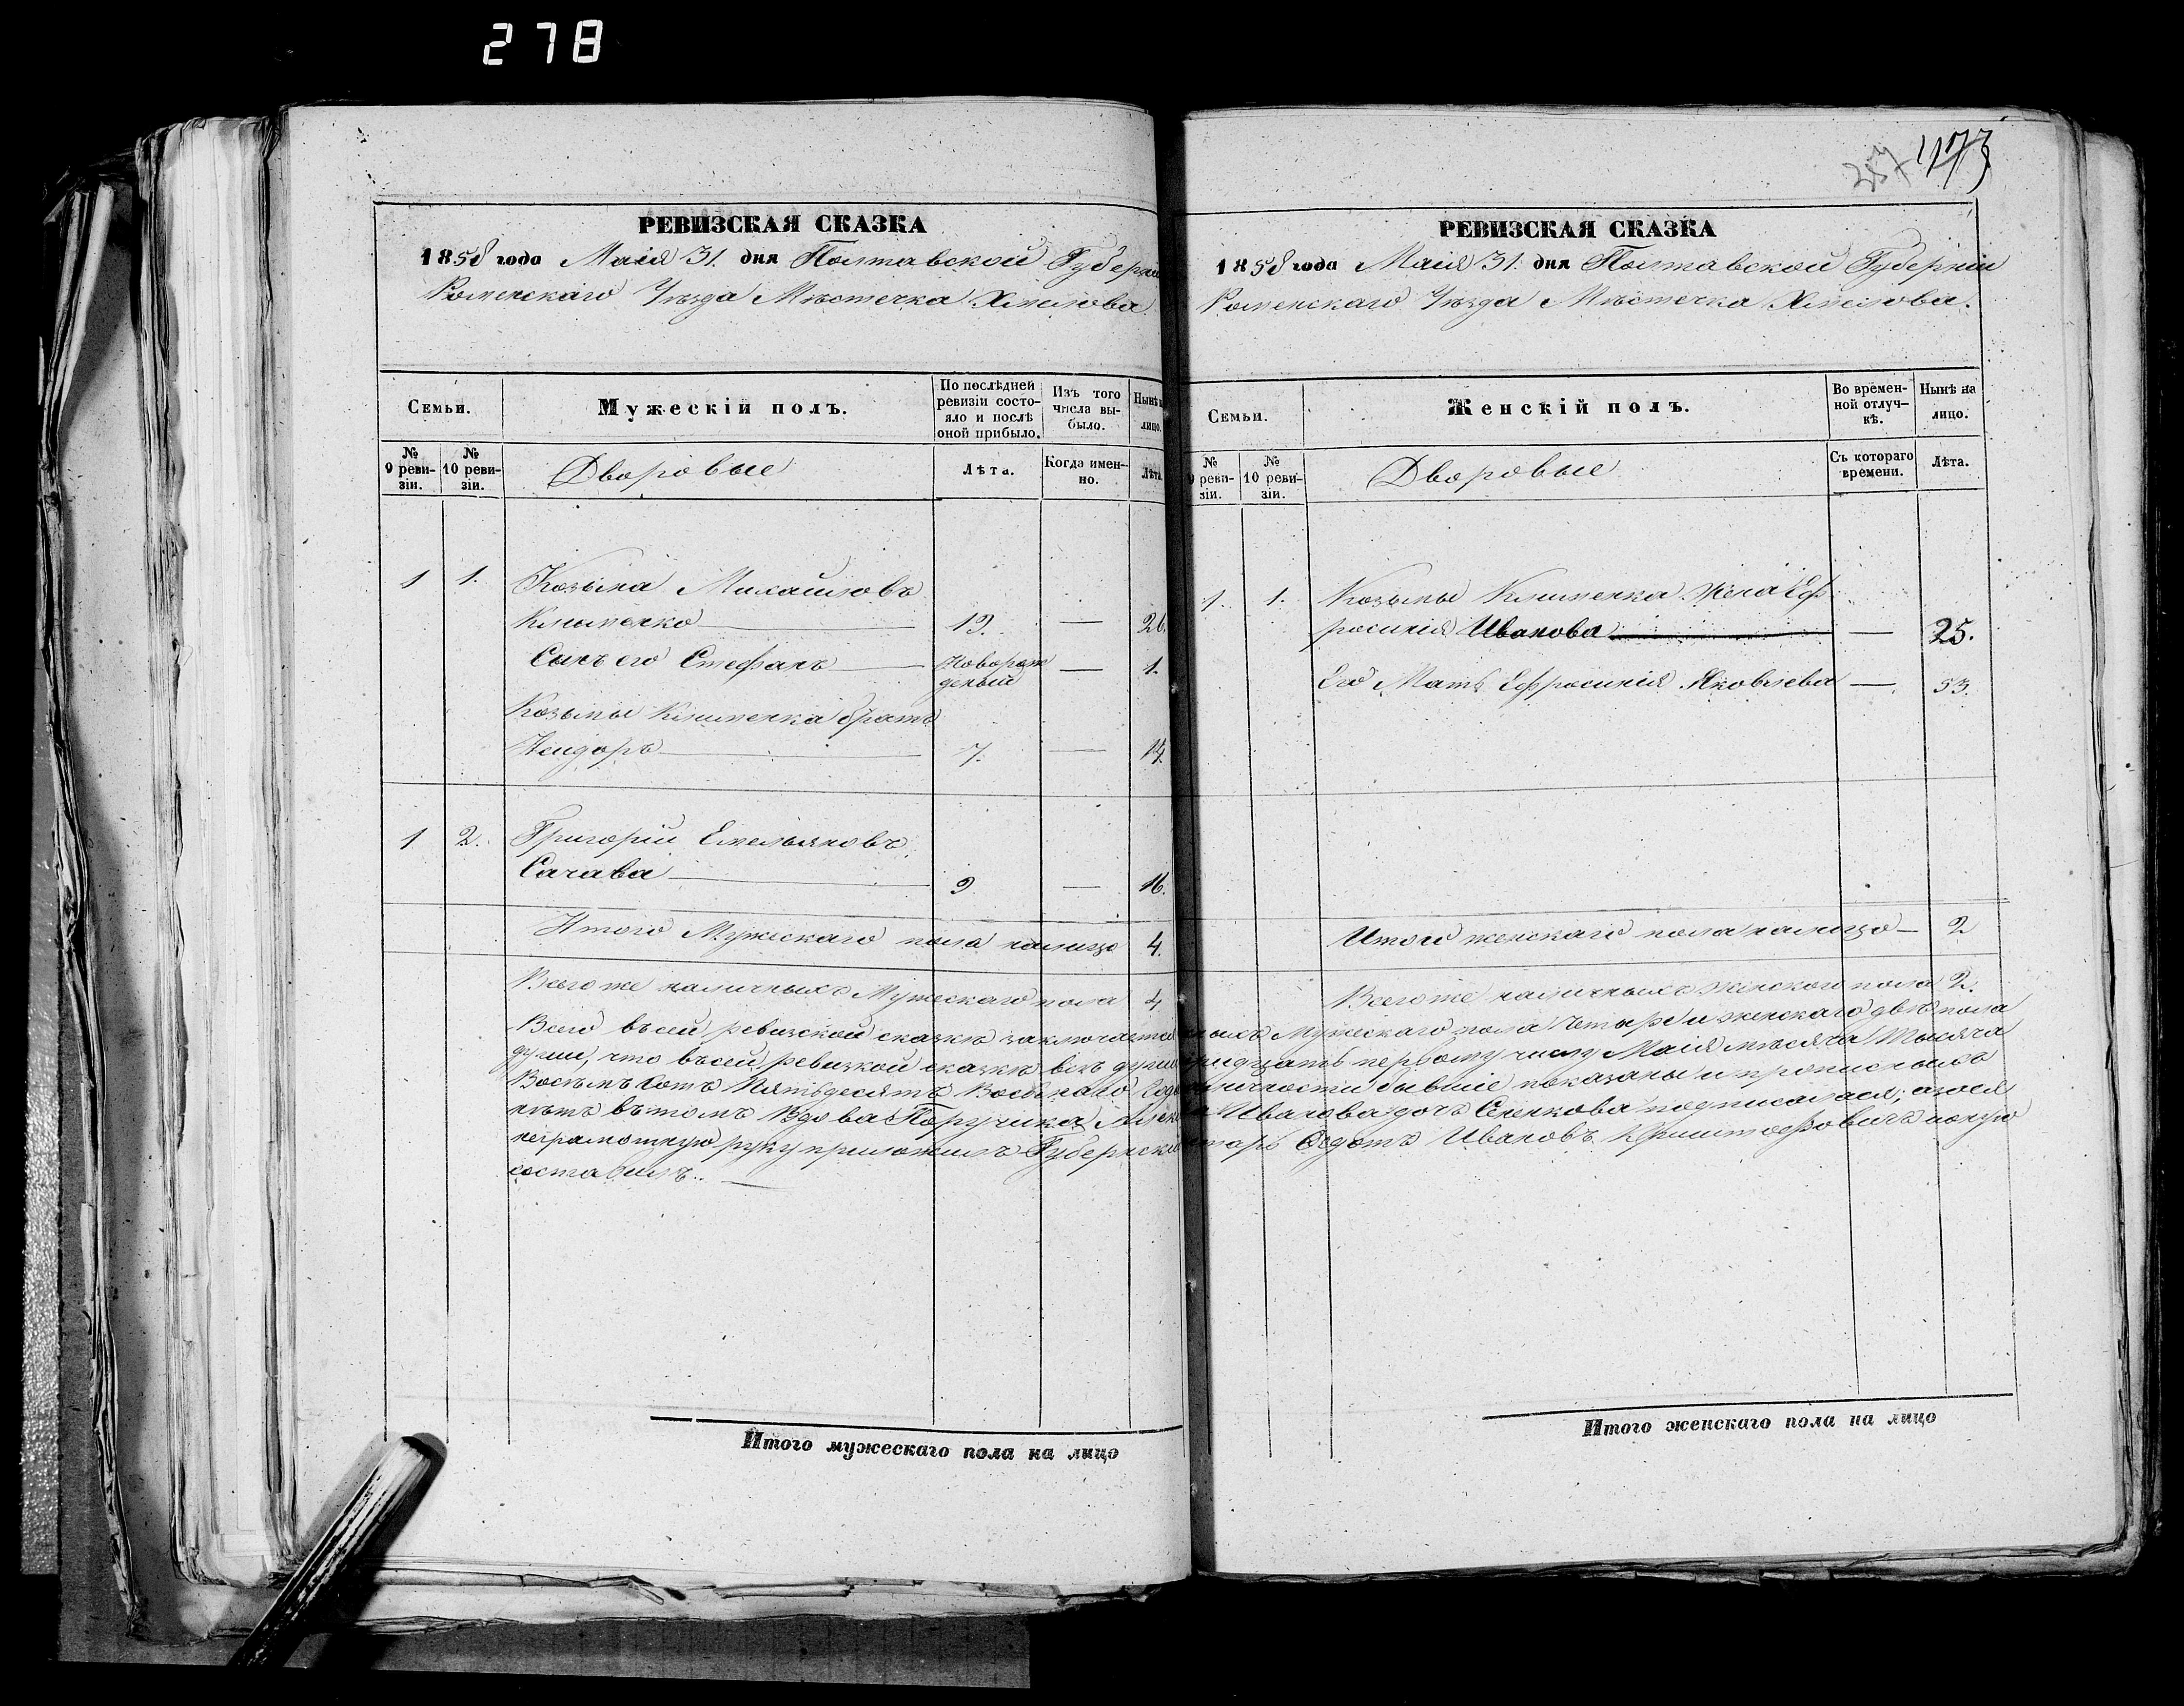 278
РЕВИЗСКАЯ СКАЗКА
1858 года Маія 31. дня Полтавской Губерн
Роменскаго Уѣзда Мѣстечка Хмелова
Семьи.
Мужескій полъ.
По послѣдней ревизіи состояло и послѣ оной прибыло.
Изъ того числа выбыло.
Нынѣ на лицо.
№ 9 ревизіи.
№ 10 ревизіи.
Дворовые
Лѣта.
Когда именно.
Лѣта.
1 1. Козьма Михайловъ
Клименко 19. — 26.
Сынъ его Стефанъ Новорож
деный — 1.
Козьмы Клименка братъ
7. — 14.
1 2. Григорій Емельяновъ
Сачава 9 — 16.
Итого Мужескаго пола налицо 4.
Всего же наличныхъ Мужескаго пола 4
Итого мужескаго пола на лицо
257 473
РЕВИЗСКАЯ СКАЗКА
1858 года Маія 31. дня Полтавской Губерніи
Роменскаго Уѣзда Мѣстечка Хмелова.
Семьи.
Женскій полъ.
Во временной отлучкѣ.
Нынѣ на лицо.
№ 9 ревизіи.
№ 10 ревизіи.
Дворовые
Съ котораго времени.
Лѣта.
1. 1. Козьмы Клименка жена Еф
росинія Иванова — 25.
Его Мать Ефросинія Яковлева — 53.
Итого женскаго пола налицо — 2
Всего же наличныхъ женского пола 2.
Всего въ сей ревизской сказкѣ заключается мужескаго пола четыре и женскаго двѣ пола
души, что въ сей ревизкой сказкѣ всѣ души тридцать первому числу Маія мѣсяча Тысяча
Восѣмъ Сотъ Пятьдесятъ Восьмаго Года наличности бывшіе показаны и прописныхъ
нѣтъ въ томъ Вдова Поручика Иванова дочь подписалася; а за ея
неграмотную руку приложилъ Губернскій Федотъ Ивановъ
составилъ.
Итого женскаго пола на лицо